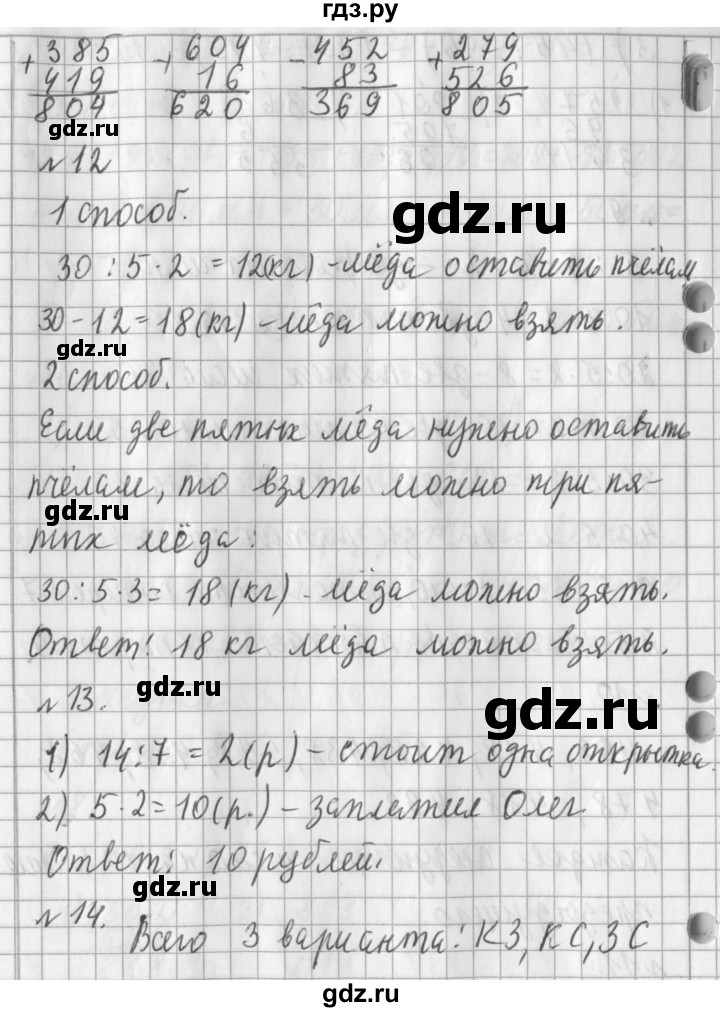 гдз.ру
+385 +604 -452 +279
419 16 83 526
804 620 369 805
gdz.ru
№12
1 способ.
gdz.ru
30:5·2 =12(кг) -мёда оставить пчёлам
30-12=18(кг) -мёда можно взять.
gdz.ru
2 способ.
Если две пятых мёда нужно оставить
пчёлам, то взять можно три пя-
gdz.ru
тых мёда:
30:5·3= 18(кг) - мёда можно взять.
Ответ: 18 кг мёда можно взять.
№13.
gdz.ru
gdz.ru
1) 14:7 = 2(р) - стоит одна открытка.
2) 5·2=10(р.) - заплатил Олег
Ответ: 10 рублей.
gdz.ru
№14.
Всего 3 варианта: КЗ, КС, ЗС
gdz.ru